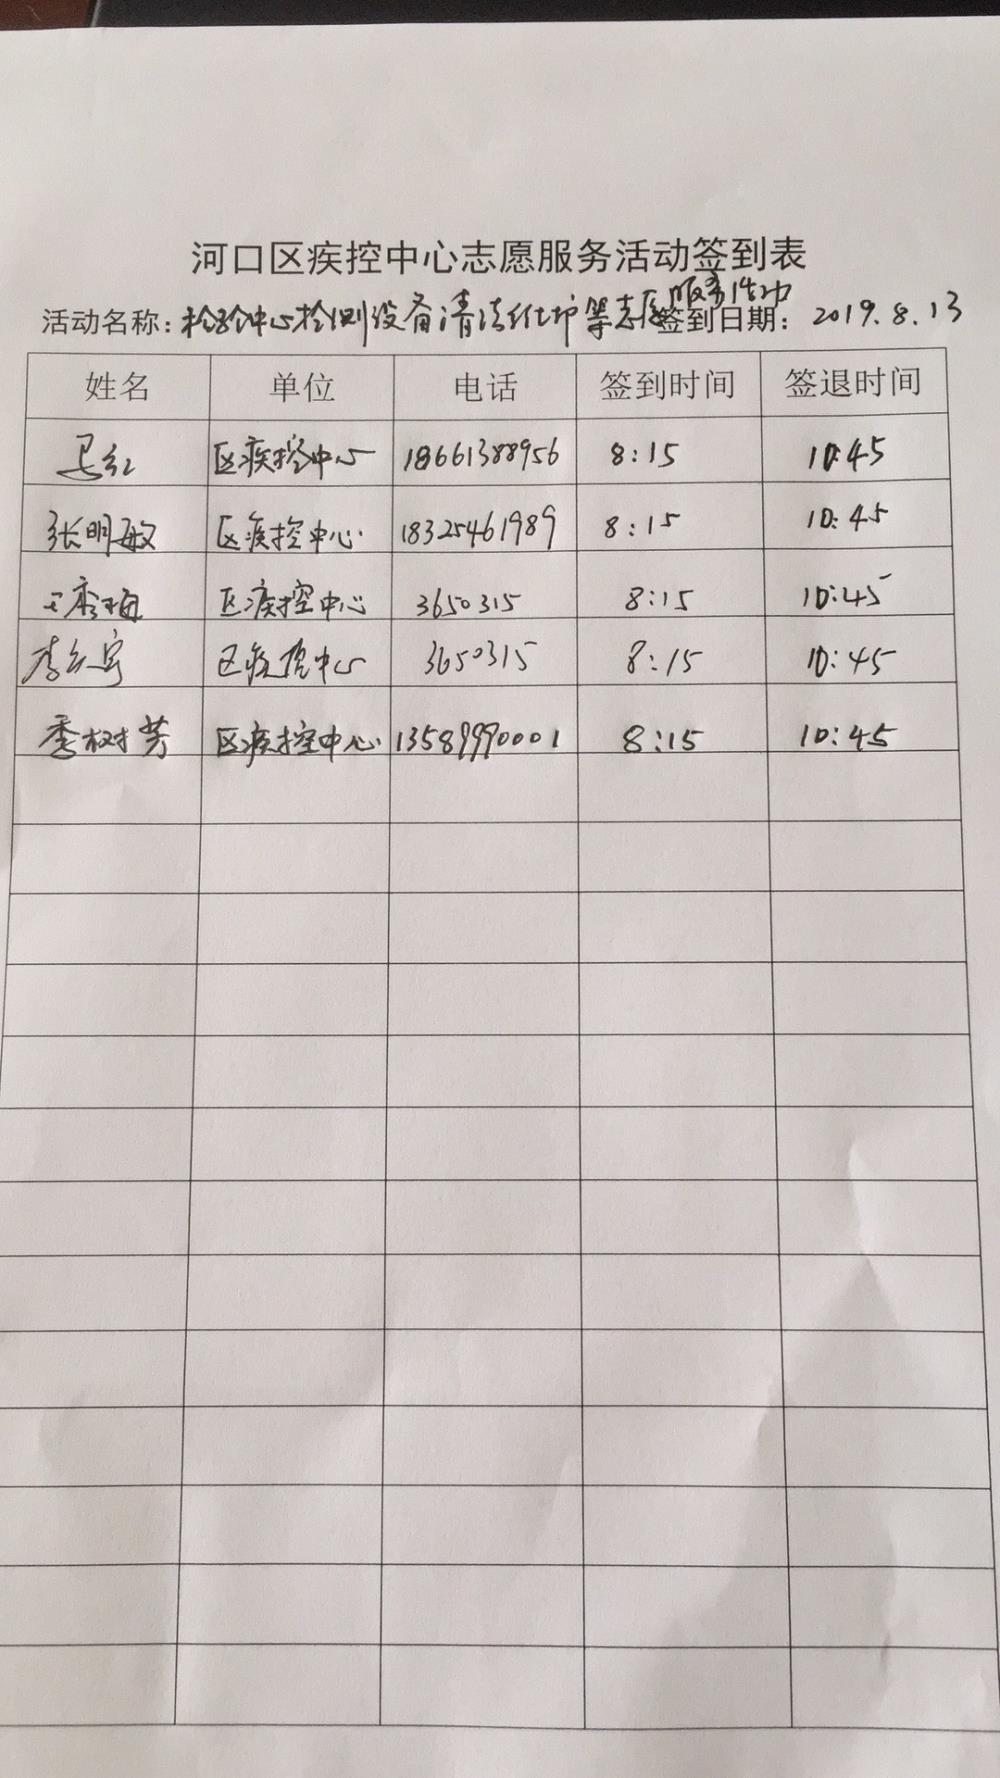 河口区疾控中心志愿服务活动签到表
活动名称：检验中心检测设备清洁维护等志愿服务活动 签到日期：2019.8.13
姓名 单位 电话 签到时间 签退时间
马红 区疾控中心 18661388956 8:15 10:45
张明敏 区疾控中心 18325461989 8:15 10:45
区疾控中心 3650315 8:15 10:45
李 区疾控中心 3650315 8:15 10:45
季树芳 区疾控中心 13589990001 8:15 10:45